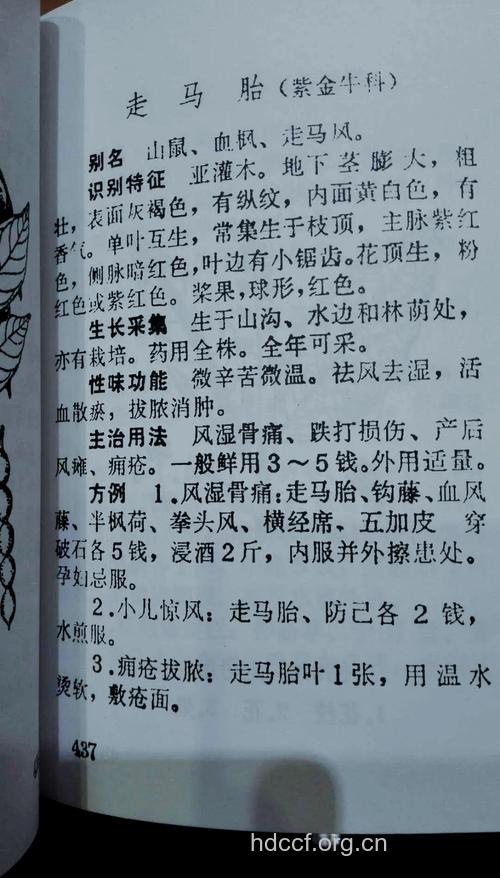 走马胎（紫金牛科）
别名 山鼠、血枫、走马风。
识别特征 亚灌木。地下茎膨大，粗
壮，表面灰褐色，有纵纹，内面黄白色，有
香气。单叶互生，常集生于枝顶，主脉紫红
色，侧脉暗红色，叶边有小锯齿。花顶生，粉
红色或紫红色。浆果，球形，红色。
生长采集 生于山沟、水边和林荫处，
亦有栽培。药用全株。全年可采。
性味功能 微辛苦微温。祛风去湿，活
血散瘀，拔脓消肿。
主治用法 风湿骨痛、跌打损伤、产后
风瘫、痈疮。一般鲜用3～5钱。外用适量。
方例 1.风湿骨痛：走马胎、钩藤、血风
藤、半枫荷、拳头风、横经席、五加皮 穿
破石各5钱，浸酒2斤，内服并外擦患处。
孕妇忌服。
2.小儿惊风：走马胎、防己各2钱，
水煎服。
3.痈疮拔脓：走马胎叶1张，用温水
烫软，敷疮面。
437
hdccf.org.cn